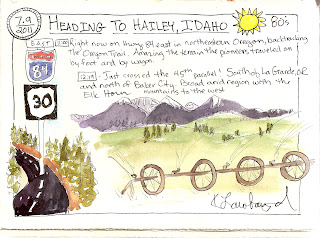 7.9
2011
HEADING TO HAILEY, IDAHO
80's
EAST
84
30
Right now on Hwy 84 east in northeastern Oregon, backtracking
the Oregon Trail. Amazing the terrain the pioneers traveled on
by foot and by wagon.
12:19 - Just crossed the 45th parallel! South of La Grande, OR
and north of Baker City. Broad ard region with the
Elk Horn mountains to the west